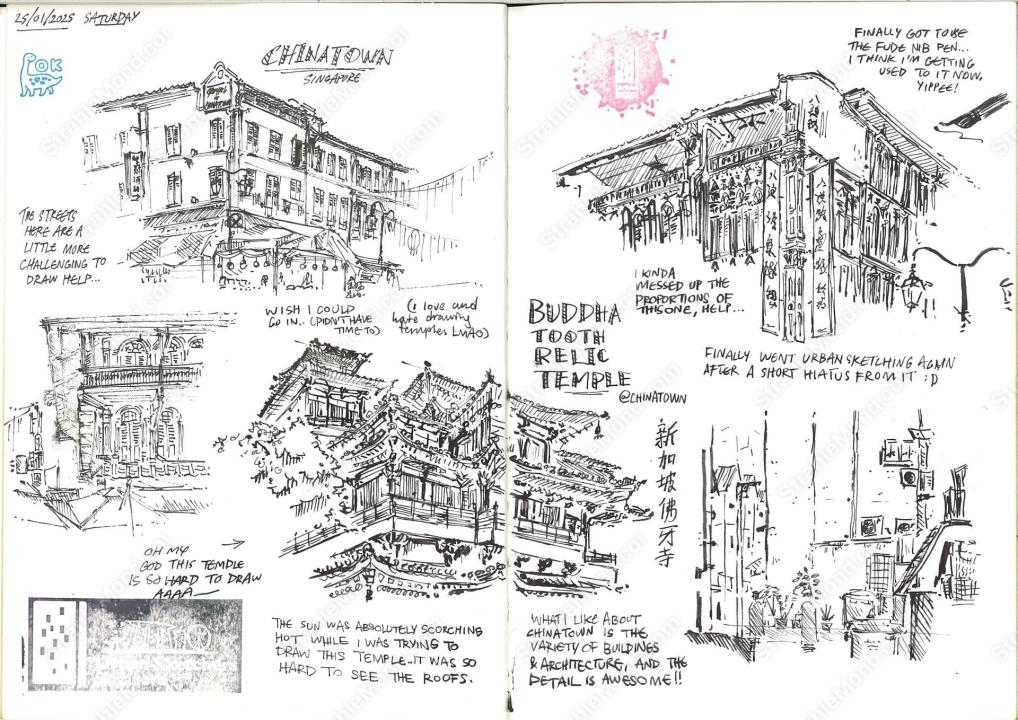 25/01/2025 SATURDAY
OK
CHINATOWN
SINGAPORE
THE STREETS
HERE ARE A
LITTLE MORE
CHALLENGING TO
DRAW HELP...
WISH I COULD
GO IN.. (DIDN'T HAVE
TIME TO)
(I love and
hate drawing
temples LMAO)
OH MY
GOD THIS TEMPLE
IS SO HARD TO DRAW
AAAA
THE SUN WAS ABSOLUTELY SCORCHING
HOT WHILE I WAS TRYING TO
DRAW THIS TEMPLE..IT WAS SO
HARD TO SEE THE ROOFS.
FINALLY GOT TO USE
THE FUDE NIB PEN...
I THINK I'M GETTING
USED TO IT NOW,
YIPPEE!
I KINDA
MESSED UP THE
PROPORTIONS OF
THIS ONE, HELP...
BUDDHA
TOOTH
RELIC
TEMPLE
@CHINATOWN
FINALLY WENT URBANSKETCHING AGAIN
AFTER A SHORT HIATUS FROM IT :D
新加坡佛牙寺
WHAT I LIKE ABOUT
CHINATOWN IS THE
VARIETY OF BUILDINGS
& ARCHITECTURE, AND THE
DETAIL IS AWESOME!!
StrahleMond.com